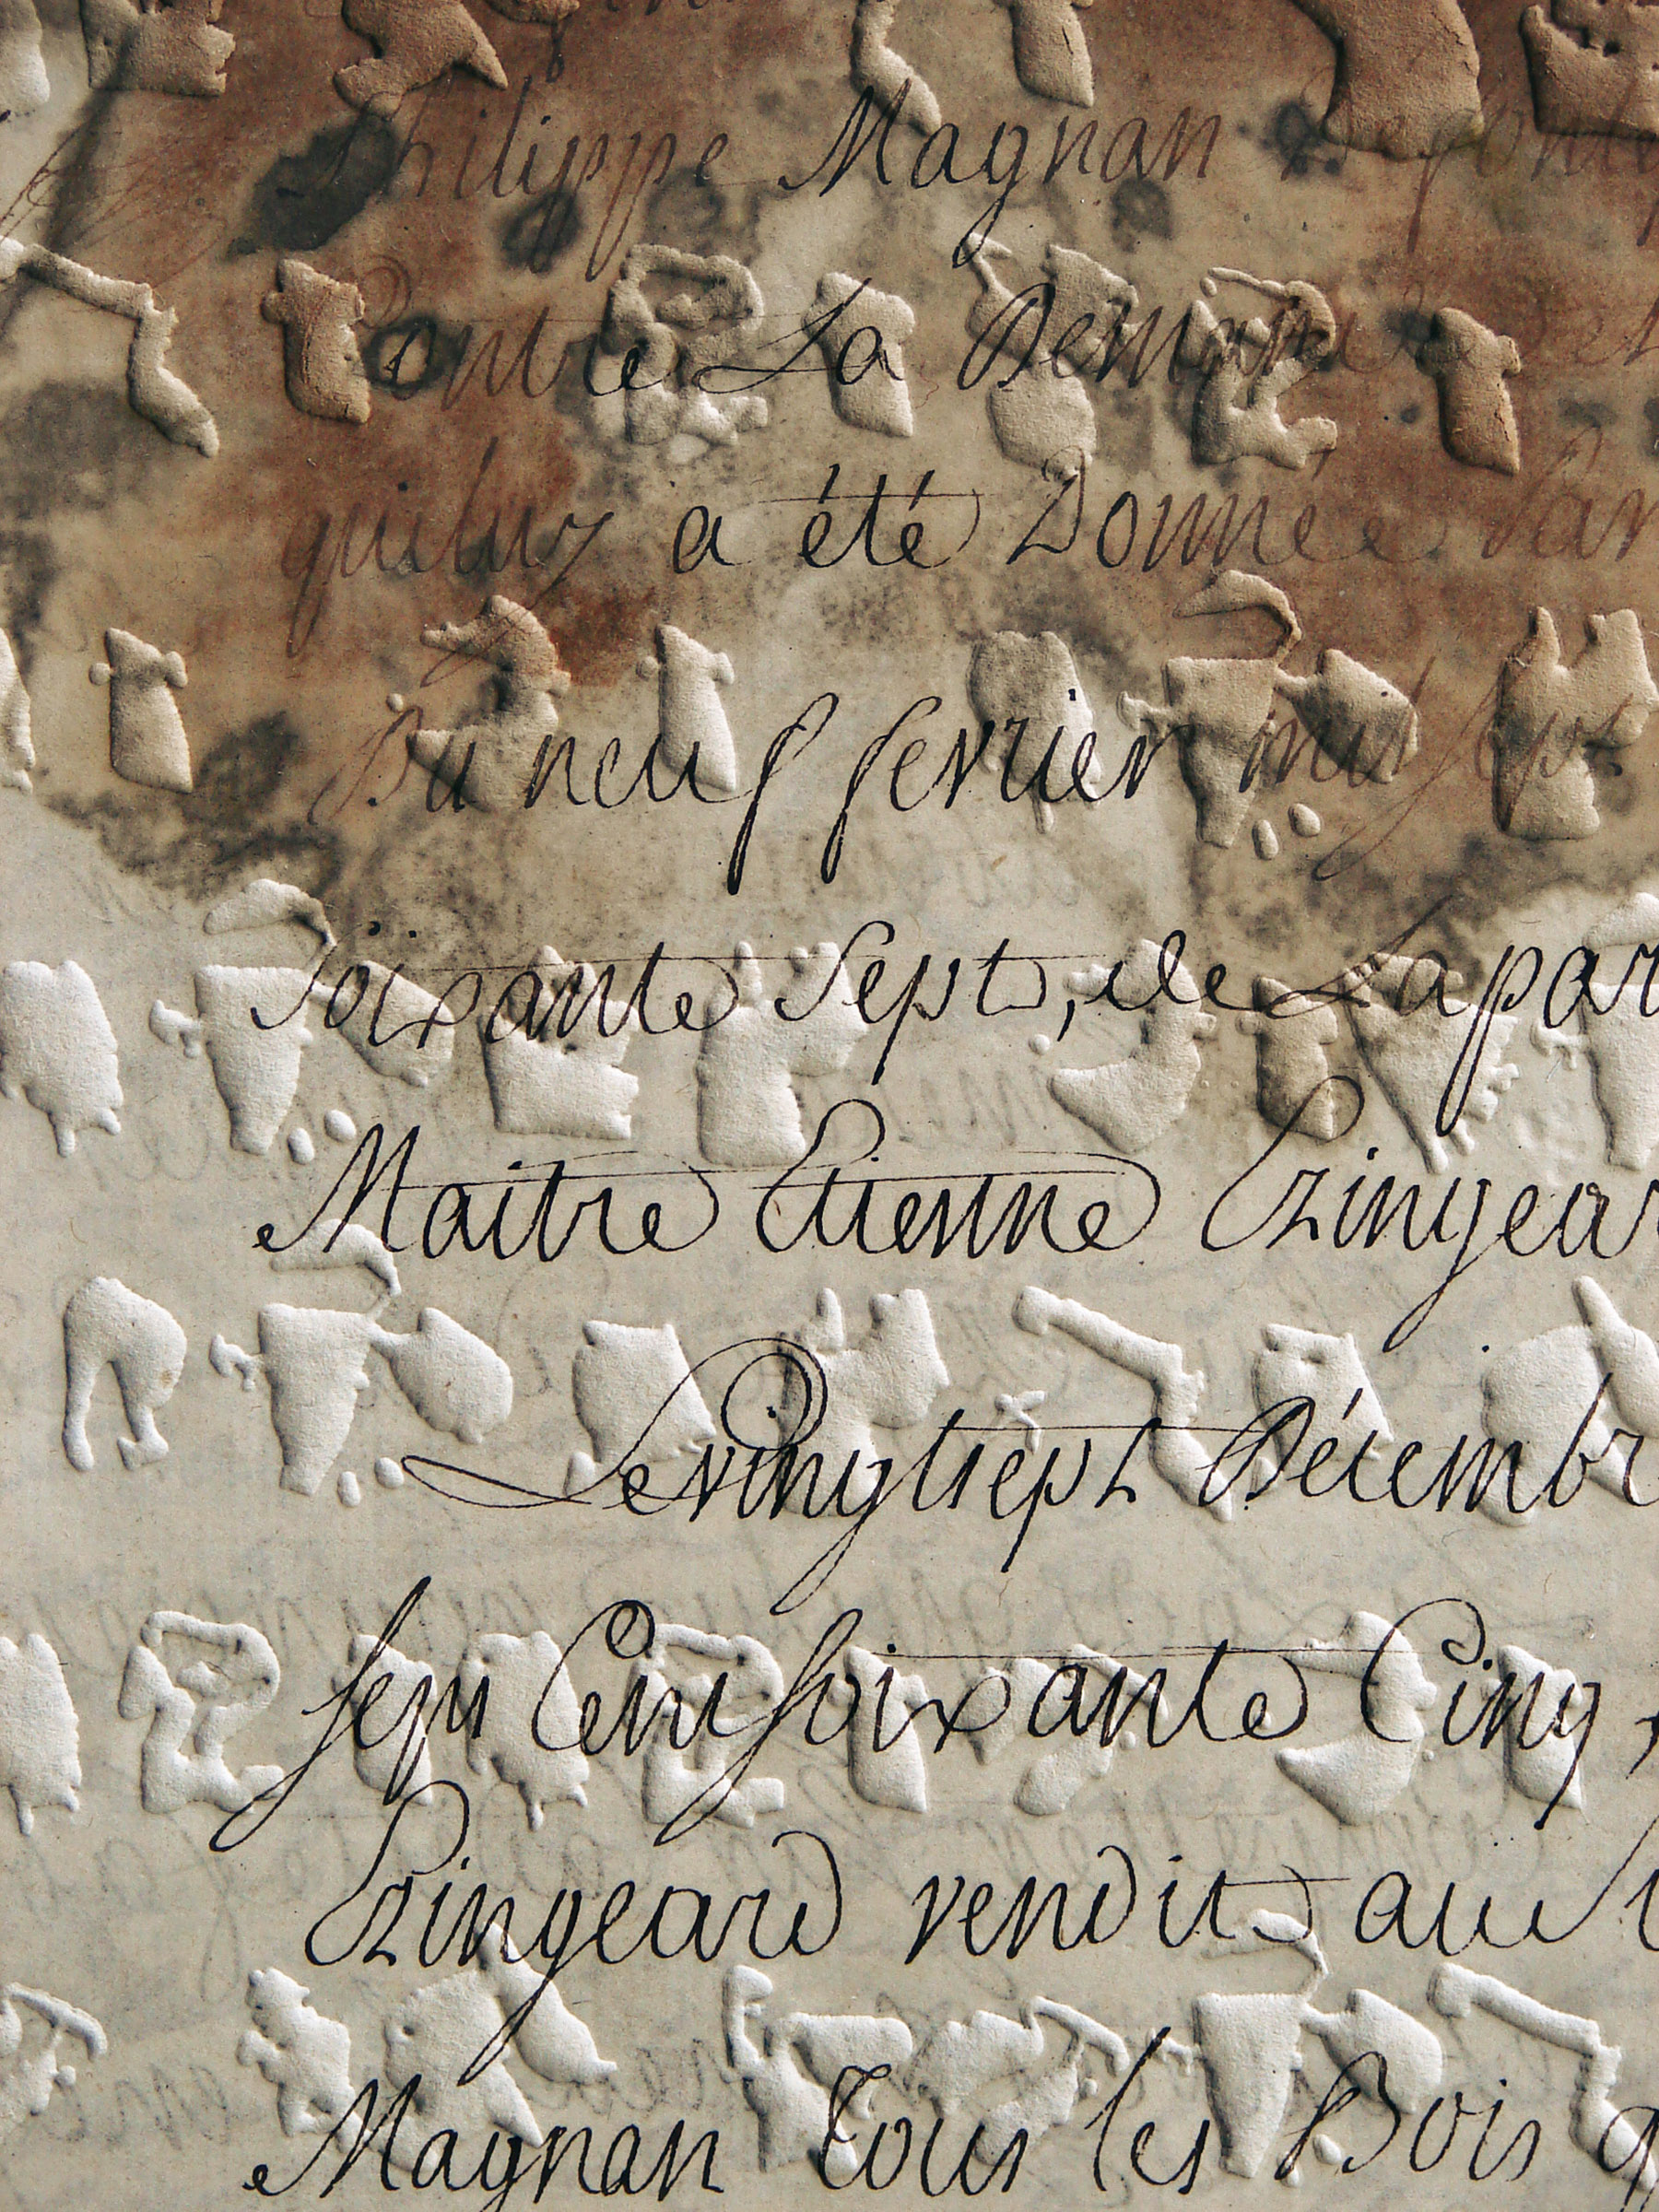 Philippe Magnan
Contre La Demande
quiluy a été Donnée Par
Du neuf fevrier mil sept
Soixante Sept, de Lapar
Maitre Etienne Rzingear
Le vingtsept Décembr
sept Cent soixante Cinq,
Rzingeard vendit au
Magnan Tous les Bois q